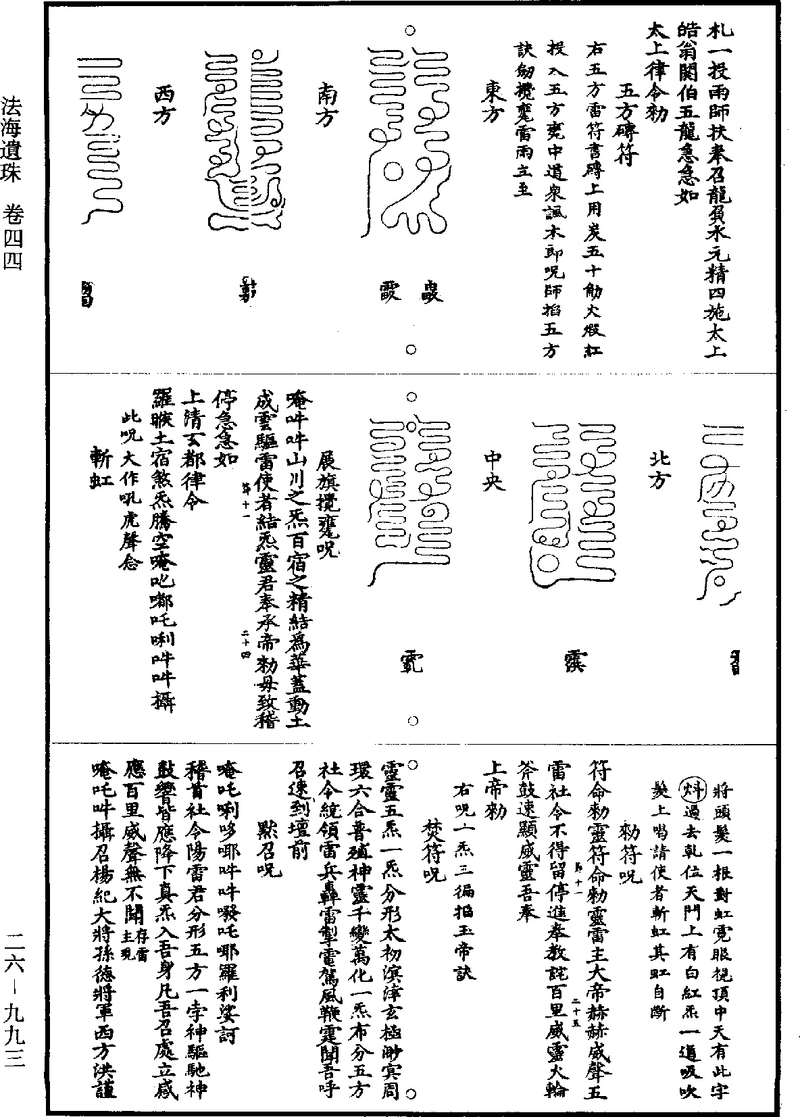 法海遺珠　卷四四
二六—九九三
札一投雨師扶奉召龍負水元精四施太上
皓翁闕伯五龍急急如
太上律令勑
五方磚符
右五方雷符書磚上用炭五十觔火煅紅
投入五方甕中道衆諷木郎呪師掐五方
訣劍攪甕雷雨立至
東方
南方
西方
北方
中央
展旗攪甕呪
唵吽吽山川之炁百宿之精結爲華蓋動土
成雲驅雷使者結炁靈君奉承帝勑毋致稽
停急急如
上清玄都律令
羅睺土宿煞炁騰空唵吔嘟吒唎吽吽攝
此呪大作吼虎聲念
斬虹
將頭髮一根對虹霓眼視頂中天有此字
過去乾位天門上有白紅炁一道吸吹
髮上喝請使者斬虹其虹自斷
勑符呪
符命勑靈符命勑靈雷主大帝赫赫威聲五
雷社令不得留停進奉教詫百里威靈火輪
斧鼓速顯威靈吾奉
上帝勑
右呪一炁三徧掐玉帝訣
焚符呪
靈靈五炁一炁分形太初溟涬玄極渺冥周
環六合普殖神靈千變萬化一炁布分五方
社令統領雷兵轟雷掣電駕風鞭霆聞吾呼
召速到壇前
默召呪
唵吒唎哆哪吽吽發吒哪羅利娑訶
稽首社令陽雷君分形五方一孛神驅馳神
鼓響皆應降下真炁入吾身凡吾召處立感
應百里威聲無不聞存雷主現
唵吒吽攝召楊紀大將孫德將軍西方洪謹